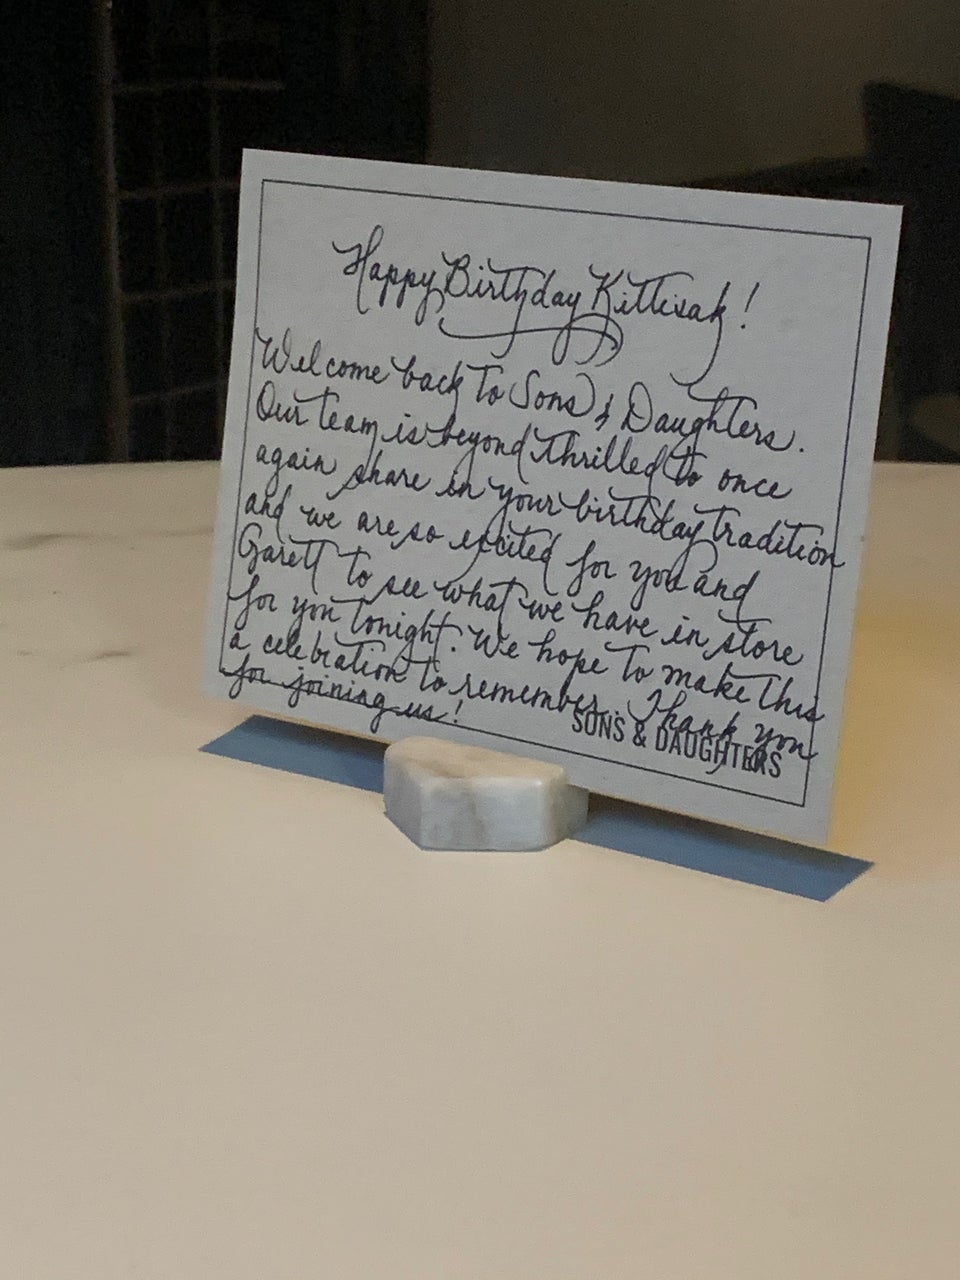 Happy Birthday Kittisak!
Welcome back to Sons & Daughters.
Our team is beyond thrilled to once
again share in your birthday tradition
and we are so excited for you and
Garett to see what we have in store
for you tonight. We hope to make this
a celebration to remember. Thank you
for joining us!
SONS & DAUGHTERS